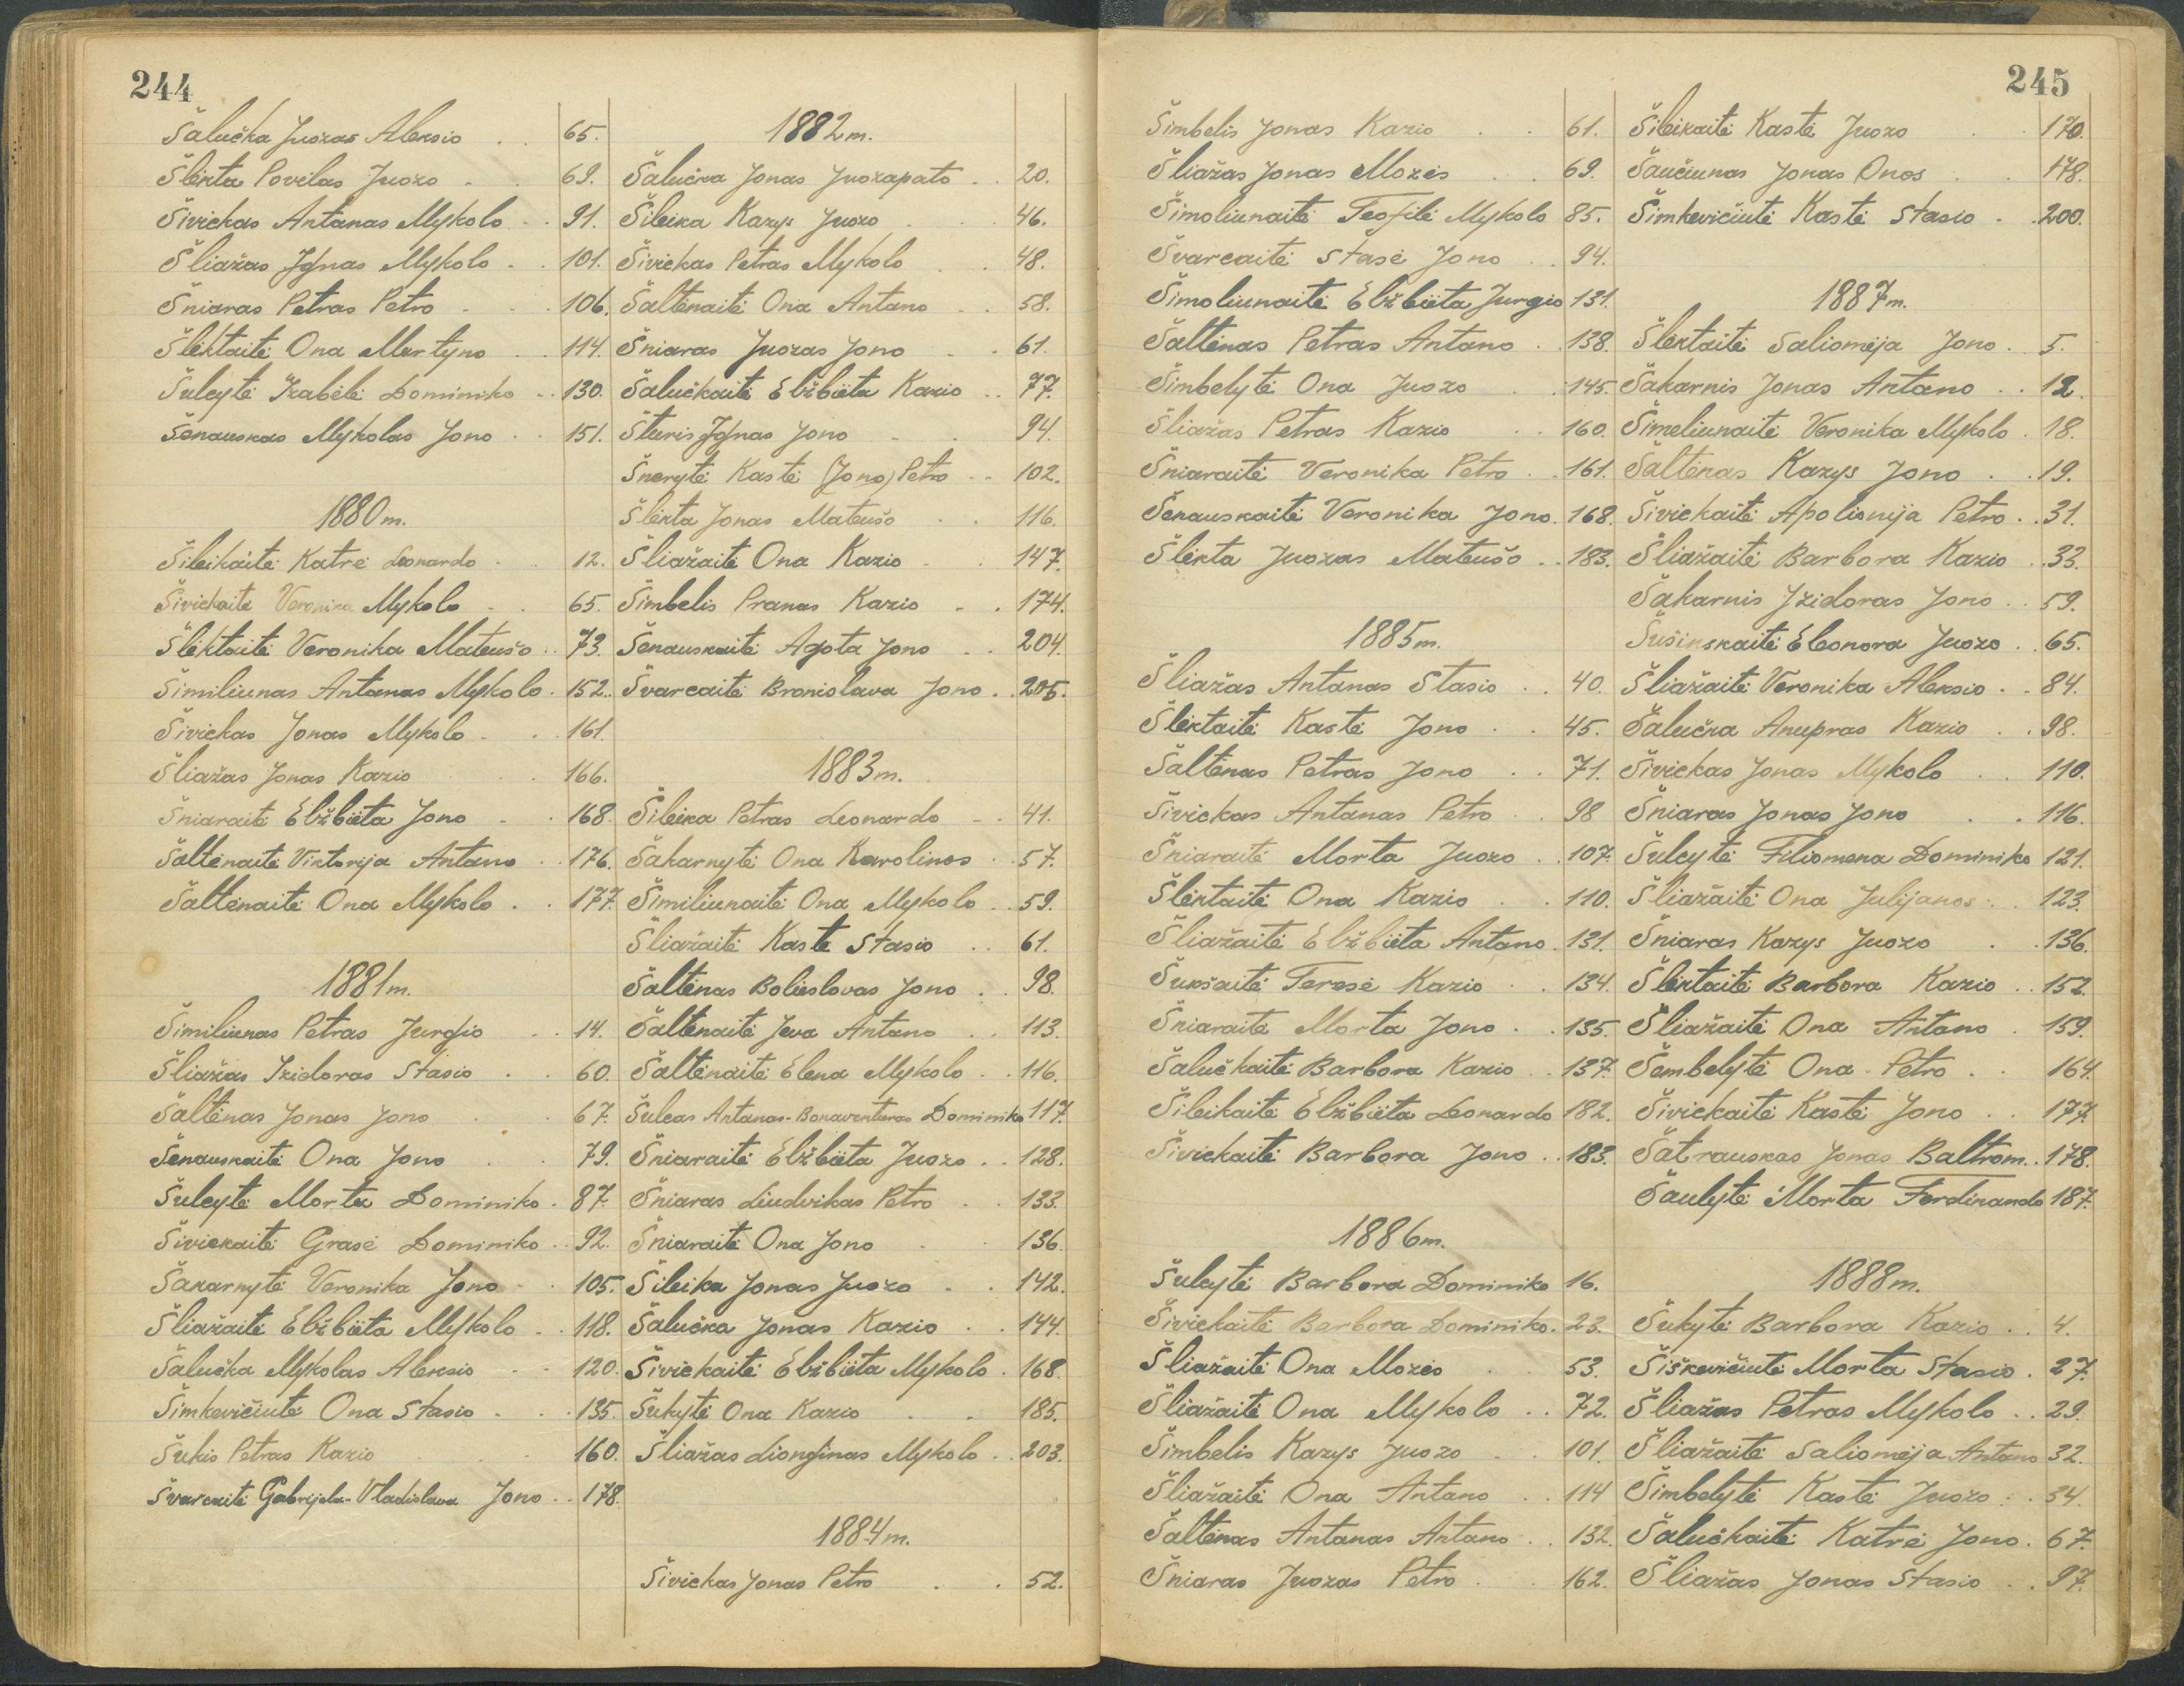 244
Šalučka Juozas Aleksio . . 65.
Šlekta Povilas Juozo . . 69.
Šivickas Antanas Mykolo . . 91.
Šliažas Ignas Mykolo . . 101.
Šniaras Petras Petro . . . 106.
Šlektaitė Ona Martyno . . 114.
Šulcytė Izabėlė Dominiko . . 130.
Šenauskas Mykolas Jono . . 151.
1880 m.
Šileikaitė Katrė Leonardo . . 12.
Šivickaitė Veronika Mykolo . . 65.
Šlektaitė Veronika Mateušo . . 73.
Šimiliunas Antanas Mykolo . 152.
Šivickas Jonas Mykolo . . 161.
Šliažas Jonas Kazio . . 166.
Šniaraitė Elžbieta Jono . . 168.
Šaltenaitė Viktorija Antano . . 176.
Šaltenaitė Ona Mykolo . . 177.
1881 m.
Šimiliunas Petras Jurgio . . 14.
Šliažas Izidoras Stasio . . 60.
Šaltenas Jonas Jono . . 67.
Šenauskaitė Ona Jono . . 79.
Šulcytė Morta Dominiko . 87.
Šivickaitė Grasė Dominiko . . 92.
Šakarnytė Veronika Jono . . 105.
Šliažaitė Elžbieta Mykolo . . 118.
Šalučka Mykolas Aleksio . . 120.
Šimkevičiutė Ona Stasio . . . 135.
Šukis Petras Kazio . . . 160.
Švarcaitė Gabrijela-Vladislava Jono . . 178.
1882 m.
Šalučka Jonas Juozapato . . 20.
Šileika Kazys Juozo . . 46.
Šivickas Petras Mykolo . . 48.
Šaltenaitė Ona Antano . . 58.
Šniaras Juozas Jono . . 61.
Šalučkaitė Elžbieta Kazio . . 77.
Šturis Ignas Jono . . 94.
Šnerytė Kastė (Jono) Petro . . 102.
Šlekta Jonas Mateušo . . 116.
Šliažaitė Ona Kazio . . 147.
Šimbelis Pranas Kazio . . 174.
Šenauskaitė Agota Jono . . 204.
Švarcaitė Bronislava Jono . . 205.
1883 m.
Šileika Petras Leonardo . . 41.
Šakarnytė Ona Karolinos . . 57.
Šimiliunaitė Ona Mykolo . . 59.
Šliažaitė Kastė Stasio . . 61.
Šaltenas Bolieslovas Jono . . 98.
Šaltenaitė Jeva Antano . . 113.
Šaltenaitė Elena Mykolo . . 116.
Šulcas Antanas-Bonaventuras Dominiko 117.
Šniaraitė Elžbieta Juozo . . 128.
Šniaras Liudvikas Petro . . 133.
Šniaraitė Ona Jono . . 136.
Šileika Jonas Juozo . . 142.
Šalučka Jonas Kazio . . 144.
Šivickaitė Elžbieta Mykolo . 168.
Šukytė Ona Kazio . . 185.
Šliažas Lionginas Mykolo . . 203.
1884 m.
Šivickas Jonas Petro . . 52.
245
Šimbelis Jonas Kazio . . 61.
Šliažas Jonas Mozės . . 69.
Šimoliunaitė Teofilė Mykolo 85.
Švarcaitė Stasė Jono . . 94.
Šimoliunaitė Elžbieta Jurgio 131.
Šaltenas Petras Antano . . 138.
Šimbelytė Ona Juozo . . 145.
Šliažas Petras Kazio . . 160.
Šniaraitė Veronika Petro . . 161.
Šenauskaitė Veronika Jono. 168.
Šlekta Juozas Mateušo . . 183.
1885 m.
Šliažas Antanas Stasio . . 40.
Šlektaitė Kastė Jono . . 45.
Šaltenas Petras Jono . . 71.
Šivickas Antanas Petro . . 98
Šniaraitė Morta Juozo . . 107.
Šlektaitė Ona Kazio . . 110.
Šliažaitė Elžbieta Antano . 131.
Šukšaitė Teresė Kazio . . 134.
Šniaraitė Morta Jono . . 135.
Šalučkaitė Barbora Kazio . . 137.
Šileikaitė Elžbieta Leonardo 182.
Šivickaitė Barbora Jono . . 183.
1886 m.
Šulcytė Barbora Dominiko 16.
Šivickaitė Barbora Dominiko. 23.
Šliažaitė Ona Mozės . . 53.
Šliažaitė Ona Mykolo . . 72.
Šimbelis Kazys Juozo . . 101.
Šliažaitė Ona Antano . . 114
Šaltenas Antanas Antano . . 132.
Šniaras Juozas Petro . . 162.
Šileikaitė Kastė Juozo . . 170.
Šaučiunas Jonas Onos . . 178.
Šimkevičiutė Kastė Stasio . . 200.
1887 m.
Šlektaitė Saliomėja Jono . 5.
Šakarnis Jonas Antano . . 12.
Šimeliunaitė Veronika Mykolo . 18.
Šaltenas Kazys Jono . . 19.
Šivickaitė Apolionija Petro . . 31.
Šliažaitė Barbora Kazio . . 33.
Šakarnis Izidoras Jono . . 59.
Šušinskaitė Eleonora Juozo . . 65.
Šliažaitė Veronika Aleksio . . 84.
Šalučka Anupras Kazio . . 98.
Šivickas Jonas Mykolo . . 110.
Šniaras Jonas Jono . . 116.
Šulcytė Filiomena Dominiko 121.
Šliažaitė Ona Julijanos . . 123.
Šniaras Kazys Juozo . . 136.
Šlektaitė Barbora Kazio . . 152.
Šliažaitė Ona Antano . 159.
Šembelytė Ona Petro . . 164.
Šivickaitė Kastė Jono . . 177.
Šatrauskas Jonas Baltrom. . 178.
Šaulytė Morta Ferdinando 187.
1888 m.
Šukytė Barbora Kazio . . 4.
Šiškevičiutė Morta Stasio . 27.
Šliažas Petras Mykolo . . 29.
Šliažaitė Saliomėja Antano 32.
Šimbelytė Kastė Juozo . . 34.
Šalučkaitė Katrė Jono . 67.
Šliažas Jonas Stasio . . 97.